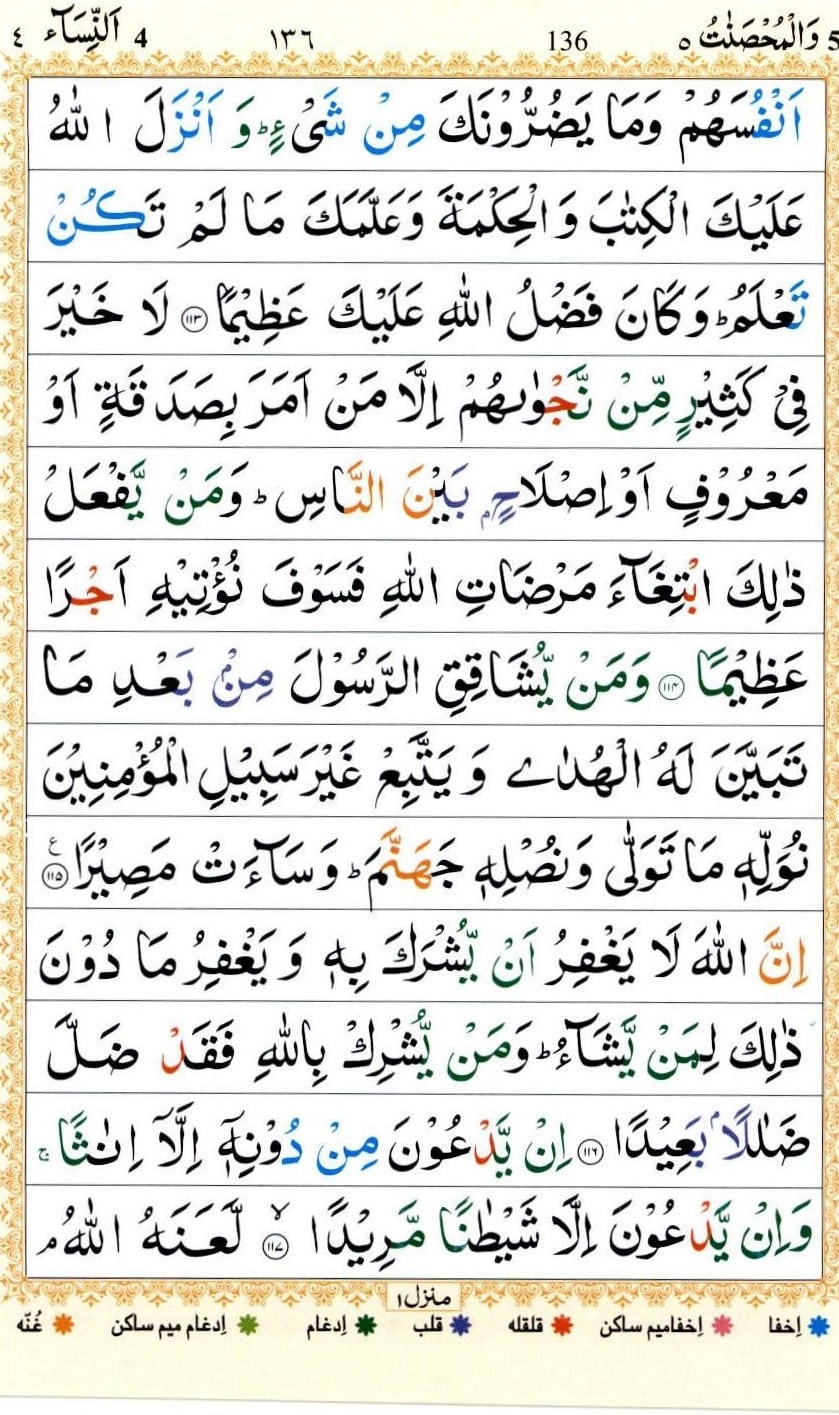 5 وَالْمُحْصَنٰتُ ٥ 136 ١٣٦ 4 اَلنِّسَآء ٤
اَنْفُسَهُمْ وَمَا يَضُرُّوْنَكَ مِنْ شَىْءٍ ؕ وَ اَنْزَلَ اللّٰهُ
عَلَيْكَ الْكِتٰبَ وَ الْحِكْمَةَ وَعَلَّمَكَ مَا لَمْ تَكُنْ
تَعْلَمُ ؕ وَكَانَ فَضْلُ اللّٰهِ عَلَيْكَ عَظِيْمًا ﴿۱۱۳﴾ لَا خَيْرَ
فِىْ كَثِيْرٍ مِّنْ نَّجْوٰىهُمْ اِلَّا مَنْ اَمَرَ بِصَدَقَةٍ اَوْ
مَعْرُوْفٍ اَوْ اِصْلَاحٍۭ بَيْنَ النَّاسِ ؕ وَمَنْ يَّفْعَلْ
ذٰلِكَ ابْتِغَآءَ مَرْضَاتِ اللّٰهِ فَسَوْفَ نُؤْتِيْهِ اَجْرًا
عَظِيْمًا ﴿۱۱۴﴾ وَمَنْ يُّشَاقِقِ الرَّسُوْلَ مِنْۢ بَعْدِ مَا
تَبَيَّنَ لَهُ الْهُدٰے وَ يَتَّبِعْ غَيْرَ سَبِيْلِ الْمُؤْمِنِيْنَ
نُوَلِّهٖ مَا تَوَلّٰى وَنُصْلِهٖ جَهَنَّمَ ؕ وَسَآءَتْ مَصِيْرًا ﴿۱۱۵﴾ ع
اِنَّ اللّٰهَ لَا يَغْفِرُ اَنْ يُّشْرَكَ بِهٖ وَ يَغْفِرُ مَا دُوْنَ
ذٰلِكَ لِمَنْ يَّشَآءُ ؕ وَمَنْ يُّشْرِكْ بِاللّٰهِ فَقَدْ ضَلَّ
ضَلٰلًاۢ بَعِيْدًا ﴿۱۱۶﴾ اِنْ يَّدْعُوْنَ مِنْ دُوْنِهٖۤ اِلَّاۤ اِنٰثًا ۚ
وَاِنْ يَّدْعُوْنَ اِلَّا شَيْطٰنًا مَّرِيْدًا ﴿۱۱۷﴾ ۙ لَّعَنَهُ اللّٰهُ ۘ
منزل ١
اِخفا اِخفامیم ساکن قلقله قلب اِدغام اِدغام میم ساکن غُنّه